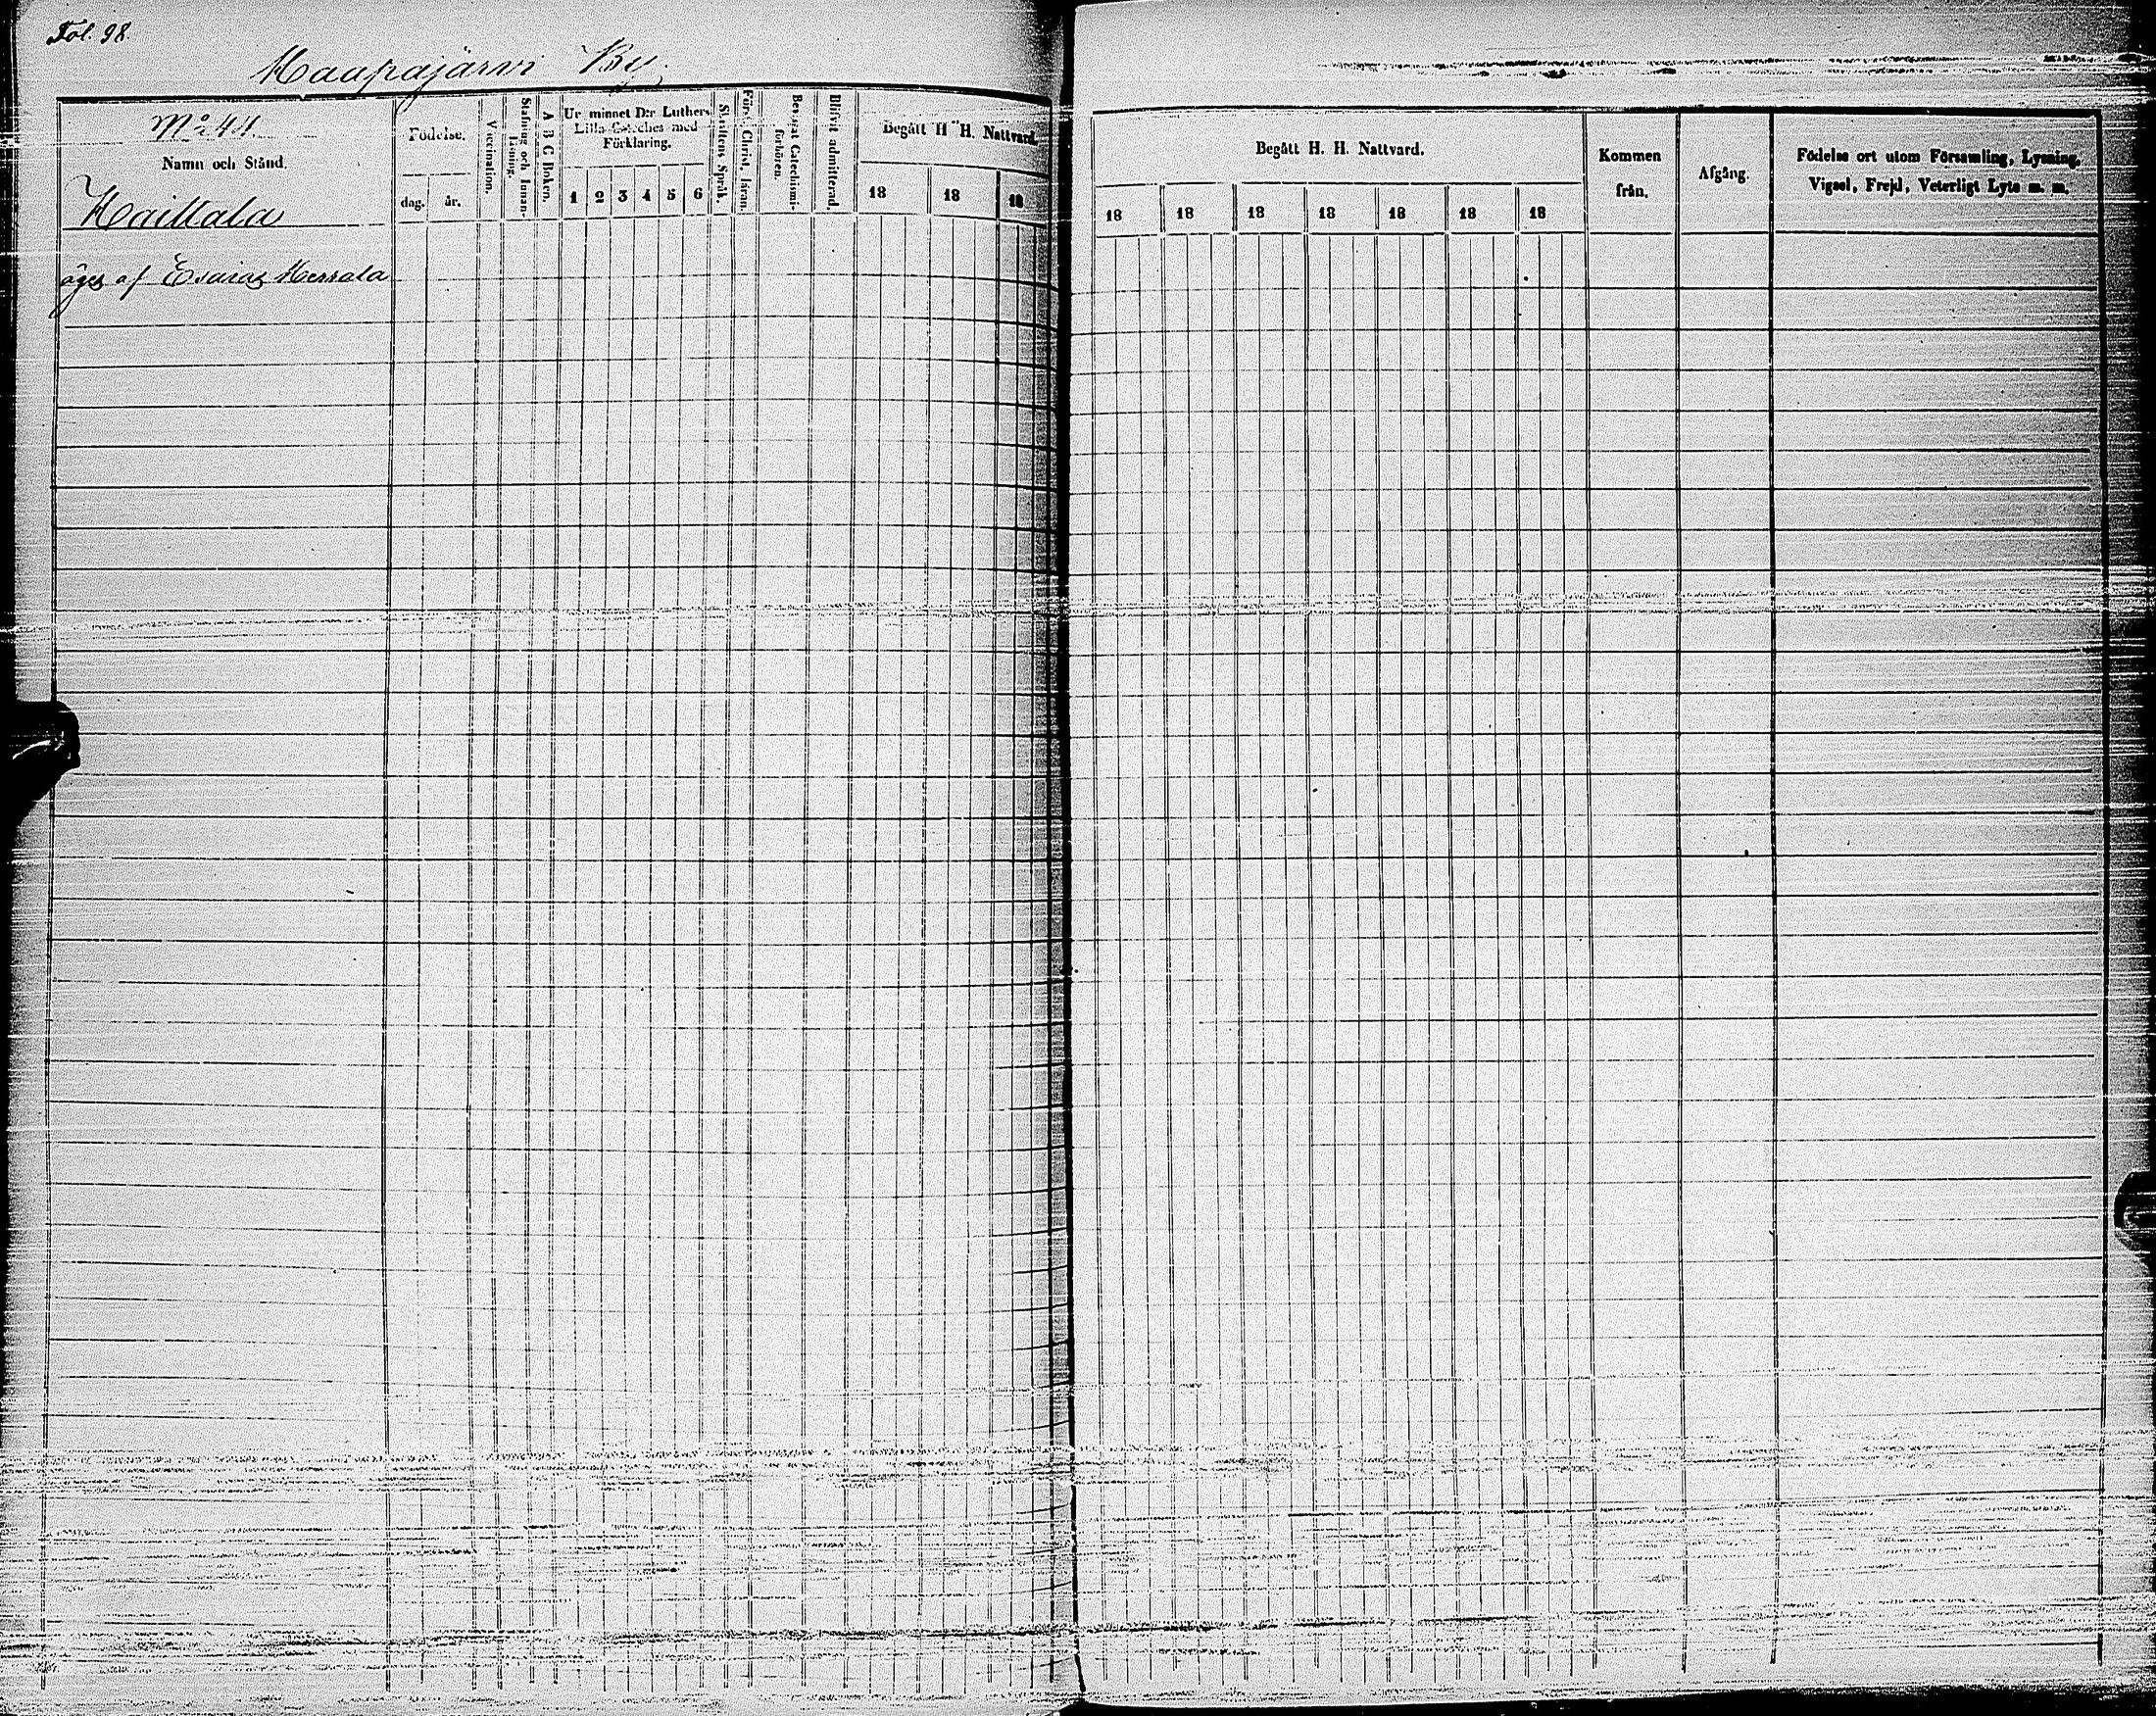 Fol. 98.
Haapajärvi By.
No 44.
Namn och Stånd.
Födelse.
dag.
år.
Vaccination.
Stafning och Innan-
läsning.
A B C Boken.
Ur minnet D:r Luthers
Lilla Cateches med
Förklaring.
1 2 3 4 5 6
Skriftens Språk.
Först. Christ. läran.
Bevistat Catechismi-
förhören.
Blifvit admitterad.
Begått H H. Nattvard.
18 18 18
Begått H. H. Nattvard.
18 18 18 18 18 18 18
Kommen
från.
Afgång.
Födelse ort utom Församling, Lysning,
Vigsel, Frejd, Veterligt Lyte m. m.
äges af Esaias